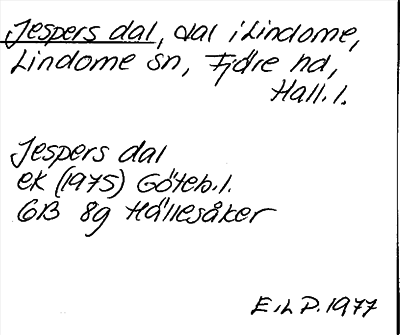 Jespers dal, dal i Lindome,
Lindome sn, Fjäre hd,
Hall. l.
Jespers dal
ek (1975) Göteb. l.
6B 8g Hällesåker
E.L.P. 1977